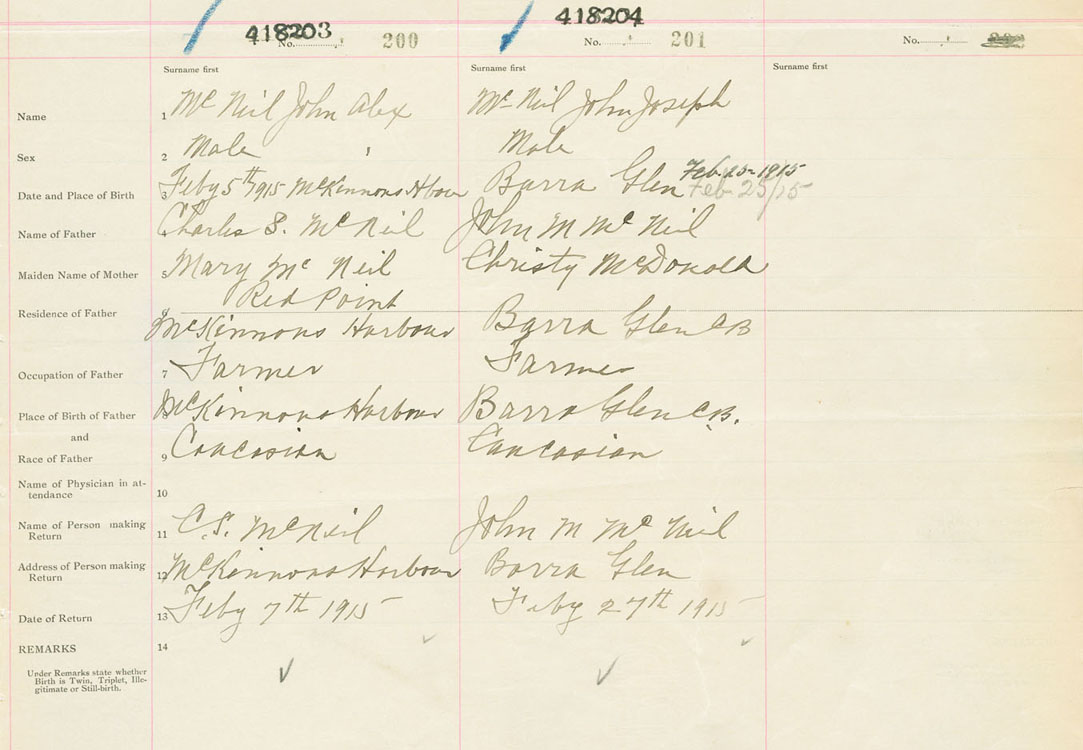 418203 418204
No. 200 No. 201 No.
Surname first Surname first Surname first
Name 1 Mc Neil John Alex Mc Neil John Joseph
Sex 2 Male Male
Feb. 25-1915
Date and Place of Birth 3 Feby 5th 1915 McKinnons Hbour Barra Glen Feb 25/15
Name of Father 4 Charles S. McNeil John M McNeil
Maiden Name of Mother 5 Mary McNeil Christy McDonald
Red Point
Residence of Father McKinnons Harbour Barra Glen CB
Occupation of Father 7 Farmer Farmer
Place of Birth of Father McKinnons Harbour Barra Glen C.B.
and
Race of Father 9 Caucasian Caucasian
Name of Physician in at-
tendance 10
Name of Person making
Return 11 C.S. McNeil John M McNeil
Address of Person making
Return 12 McKinnons Harbour Barra Glen
Date of Return 13 Feby 7th 1915 Feby 27th 1915
REMARKS 14
Under Remarks state whether
Birth is Twin, Triplet, Ille-
gitimate or Still-birth.